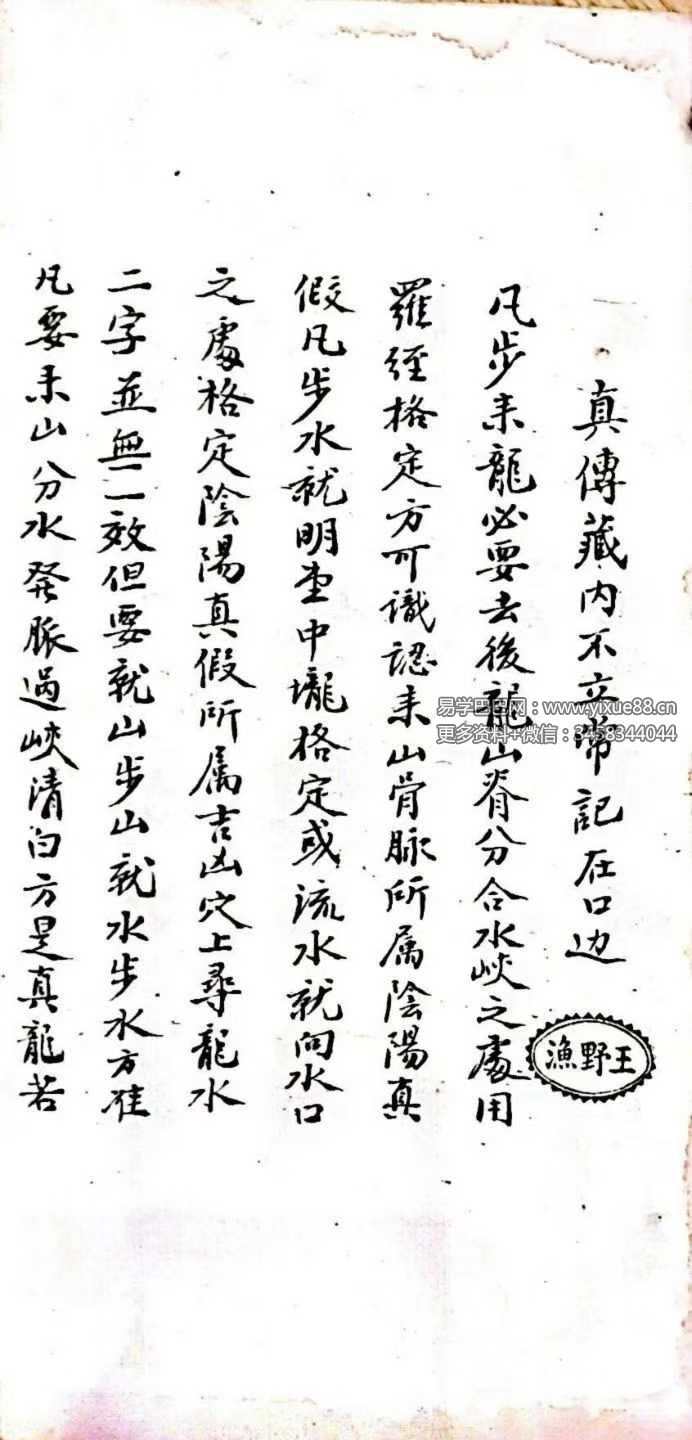 真傳藏内不立常記在口边
凡步来龍必要去後龍山脊分合水峽之處用
羅經格定方可識認来山骨脈所属陰陽真
假凡步水就明堂中壠格定或流水就向水口
之處格定陰陽真假所属吉凶穴上尋龍水
二字並無一效但要就山步山就水步水方准
凡要来山分水発脈過峽清白方是真龍若
王野漁
易学巴巴网：www.yixue88.cn
更多资料+微信：3458344044